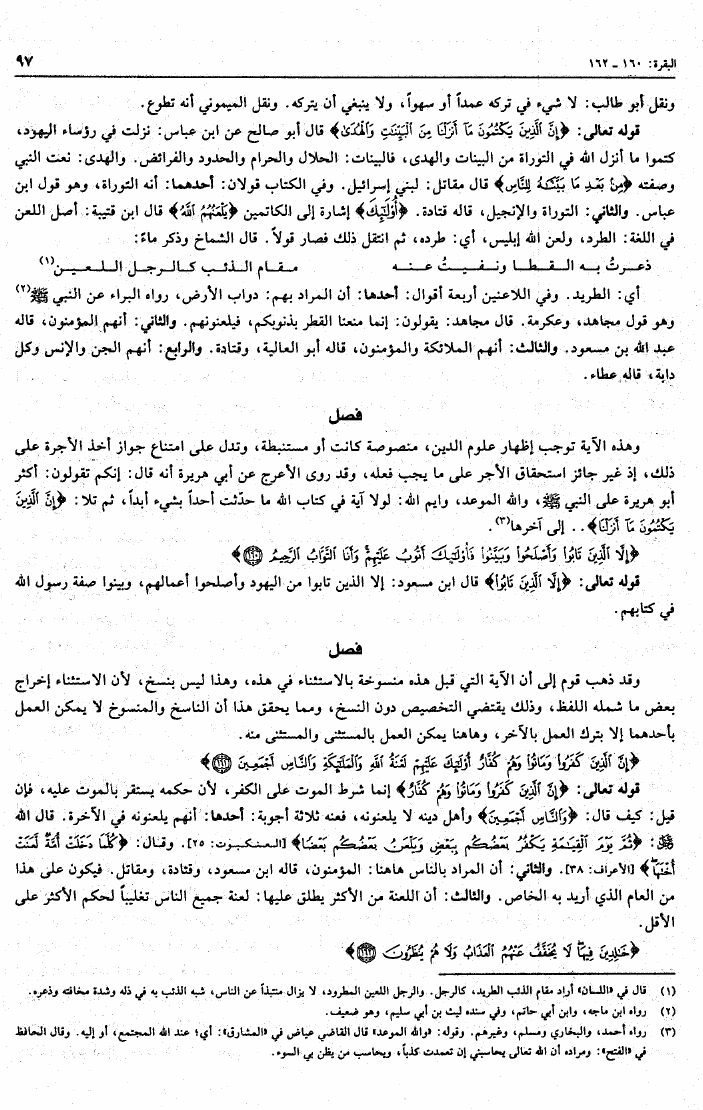 البقرة: ١٦٠ - ١٦٢
٩٧
ونقل أبو طالب: لا شيء في تركه عمداً أو سهواً، ولا ينبغي أن يتركه. ونقل الميموني أنه تطوع.
قوله تعالى: ﴿إِنَّ ٱلَّذِينَ يَكْتُمُونَ مَآ أَنزَلْنَا مِنَ ٱلْبَيِّنَٰتِ وَٱلْهُدَىٰ﴾ قال أبو صالح عن ابن عباس: نزلت في رؤساء اليهود،
كتموا ما أنزل الله في التوراة من البينات والهدى، فالبينات: الحلال والحرام والحدود والفرائض. والهدى: نعت النبي
وصفته ﴿مِنۢ بَعْدِ مَا بَيَّنَّٰهُ لِلنَّاسِ﴾ قال مقاتل: لبني إسرائيل. وفي الكتاب قولان: أحدهما: أنه التوراة، وهو قول ابن
عباس. والثاني: التوراة والإنجيل، قاله قتادة. ﴿أُو۟لَٰٓئِكَ﴾ إشارة إلى الكاتمين ﴿يَلْعَنُهُمُ ٱللَّهُ﴾ قال ابن قتيبة: أصل اللعن
في اللغة: الطرد، ولعن الله إبليس، أي: طرده، ثم انتقل ذلك فصار قولاً. قال الشماخ وذكر ماءً:
ذعرتُ به القطا ونفيتُ عنه مقام الذئب كالرجل اللعين(١)
أي: الطريد. وفي اللاعنين أربعة أقوال: أحدها: أن المراد بهم: دواب الأرض، رواه البراء عن النبي ﷺ(٢)
وهو قول مجاهد، وعكرمة. قال مجاهد: يقولون: إنما منعنا القطر بذنوبكم، فيلعنونهم. والثاني: أنهم المؤمنون، قاله
عبد الله بن مسعود. والثالث: أنهم الملائكة والمؤمنون، قاله أبو العالية، وقتادة. والرابع: أنهم الجن والإنس وكل
دابة، قاله عطاء.
فصل
وهذه الآية توجب إظهار علوم الدين، منصوصة كانت أو مستنبطة، وتدل على امتناع جواز أخذ الأجرة على
ذلك، إذ غير جائز استحقاق الأجر على ما يجب فعله، وقد روى الأعرج عن أبي هريرة أنه قال: إنكم تقولون: أكثر
أبو هريرة على النبي ﷺ، والله الموعد، وايم الله: لولا آية في كتاب الله ما حدّثت أحداً بشيء أبداً، ثم تلا: ﴿إِنَّ ٱلَّذِينَ
يَكْتُمُونَ مَآ أَنزَلْنَا﴾.. إلى آخرها(٣).
﴿إِلَّا ٱلَّذِينَ تَابُوا۟ وَأَصْلَحُوا۟ وَبَيَّنُوا۟ فَأُو۟لَٰٓئِكَ أَتُوبُ عَلَيْهِمْ وَأَنَا ٱلتَّوَّابُ ٱلرَّحِيمُ ١٦٠﴾
قوله تعالى: ﴿إِلَّا ٱلَّذِينَ تَابُوا۟﴾ قال ابن مسعود: إلا الذين تابوا من اليهود وأصلحوا أعمالهم، وبينوا صفة رسول الله
في كتابهم.
فصل
وقد ذهب قوم إلى أن الآية التي قبل هذه منسوخة بالاستثناء في هذه، وهذا ليس بنسخ، لأن الاستثناء إخراج
بعض ما شمله اللفظ، وذلك يقتضي التخصيص دون النسخ، ومما يحقق هذا أن الناسخ والمنسوخ لا يمكن العمل
بأحدهما إلا بترك العمل بالآخر، وهاهنا يمكن العمل بالمستثنى والمستثنى منه.
﴿إِنَّ ٱلَّذِينَ كَفَرُوا۟ وَمَاتُوا۟ وَهُمْ كُفَّارٌ أُو۟لَٰٓئِكَ عَلَيْهِمْ لَعْنَةُ ٱللَّهِ وَٱلْمَلَٰٓئِكَةِ وَٱلنَّاسِ أَجْمَعِينَ ١٦١﴾
قوله تعالى: ﴿إِنَّ ٱلَّذِينَ كَفَرُوا۟ وَمَاتُوا۟ وَهُمْ كُفَّارٌ﴾ إنما شرط الموت على الكفر، لأن حكمه يستقر بالموت عليه، فإن
قيل: كيف قال: ﴿وَٱلنَّاسِ أَجْمَعِينَ﴾ وأهل دينه لا يلعنونه، فعنه ثلاثة أجوبة: أحدها: أنهم يلعنونه في الآخرة. قال الله
ﷺ: ﴿ثُمَّ يَوْمَ ٱلْقِيَٰمَةِ يَكْفُرُ بَعْضُكُم بِبَعْضٍ وَيَلْعَنُ بَعْضُكُم بَعْضًا﴾ [العنكبوت: ٢٥]. وقال: ﴿كُلَّمَا دَخَلَتْ أُمَّةٌ لَّعَنَتْ
أُخْتَهَا﴾ [الأعراف: ٣٨]. والثاني: أن المراد بالناس هاهنا: المؤمنون، قاله ابن مسعود، وقتادة، ومقاتل. فيكون على هذا
من العام الذي أريد به الخاص. والثالث: أن اللعنة من الأكثر يطلق عليها: لعنة جميع الناس تغليباً لحكم الأكثر على
الأقل.
﴿خَٰلِدِينَ فِيهَا لَا يُخَفَّفُ عَنْهُمُ ٱلْعَذَابُ وَلَا هُمْ يُنظَرُونَ ١٦٢﴾
(١) قال في «اللسان» أراد مقام الذئب الطريد، كالرجل. والرجل اللعين المطرود، لا يزال منتبذاً عن الناس، شبه الذئب به في ذله وشدة مخافته وذعره.
(٢) رواه ابن ماجه، وابن أبي حاتم، وفي سنده ليث بن أبي سليم، وهو ضعيف.
(٣) رواه أحمد، والبخاري ومسلم، وغيرهم. وقوله: «والله الموعد» قال القاضي عياض في «المشارق»: أي؛ عند الله المجتمع، أو إليه. وقال الحافظ
في «الفتح»: ومراده أن الله تعالى يحاسبني إن تعمدت كذباً، ويحاسب من يظن بي السوء.